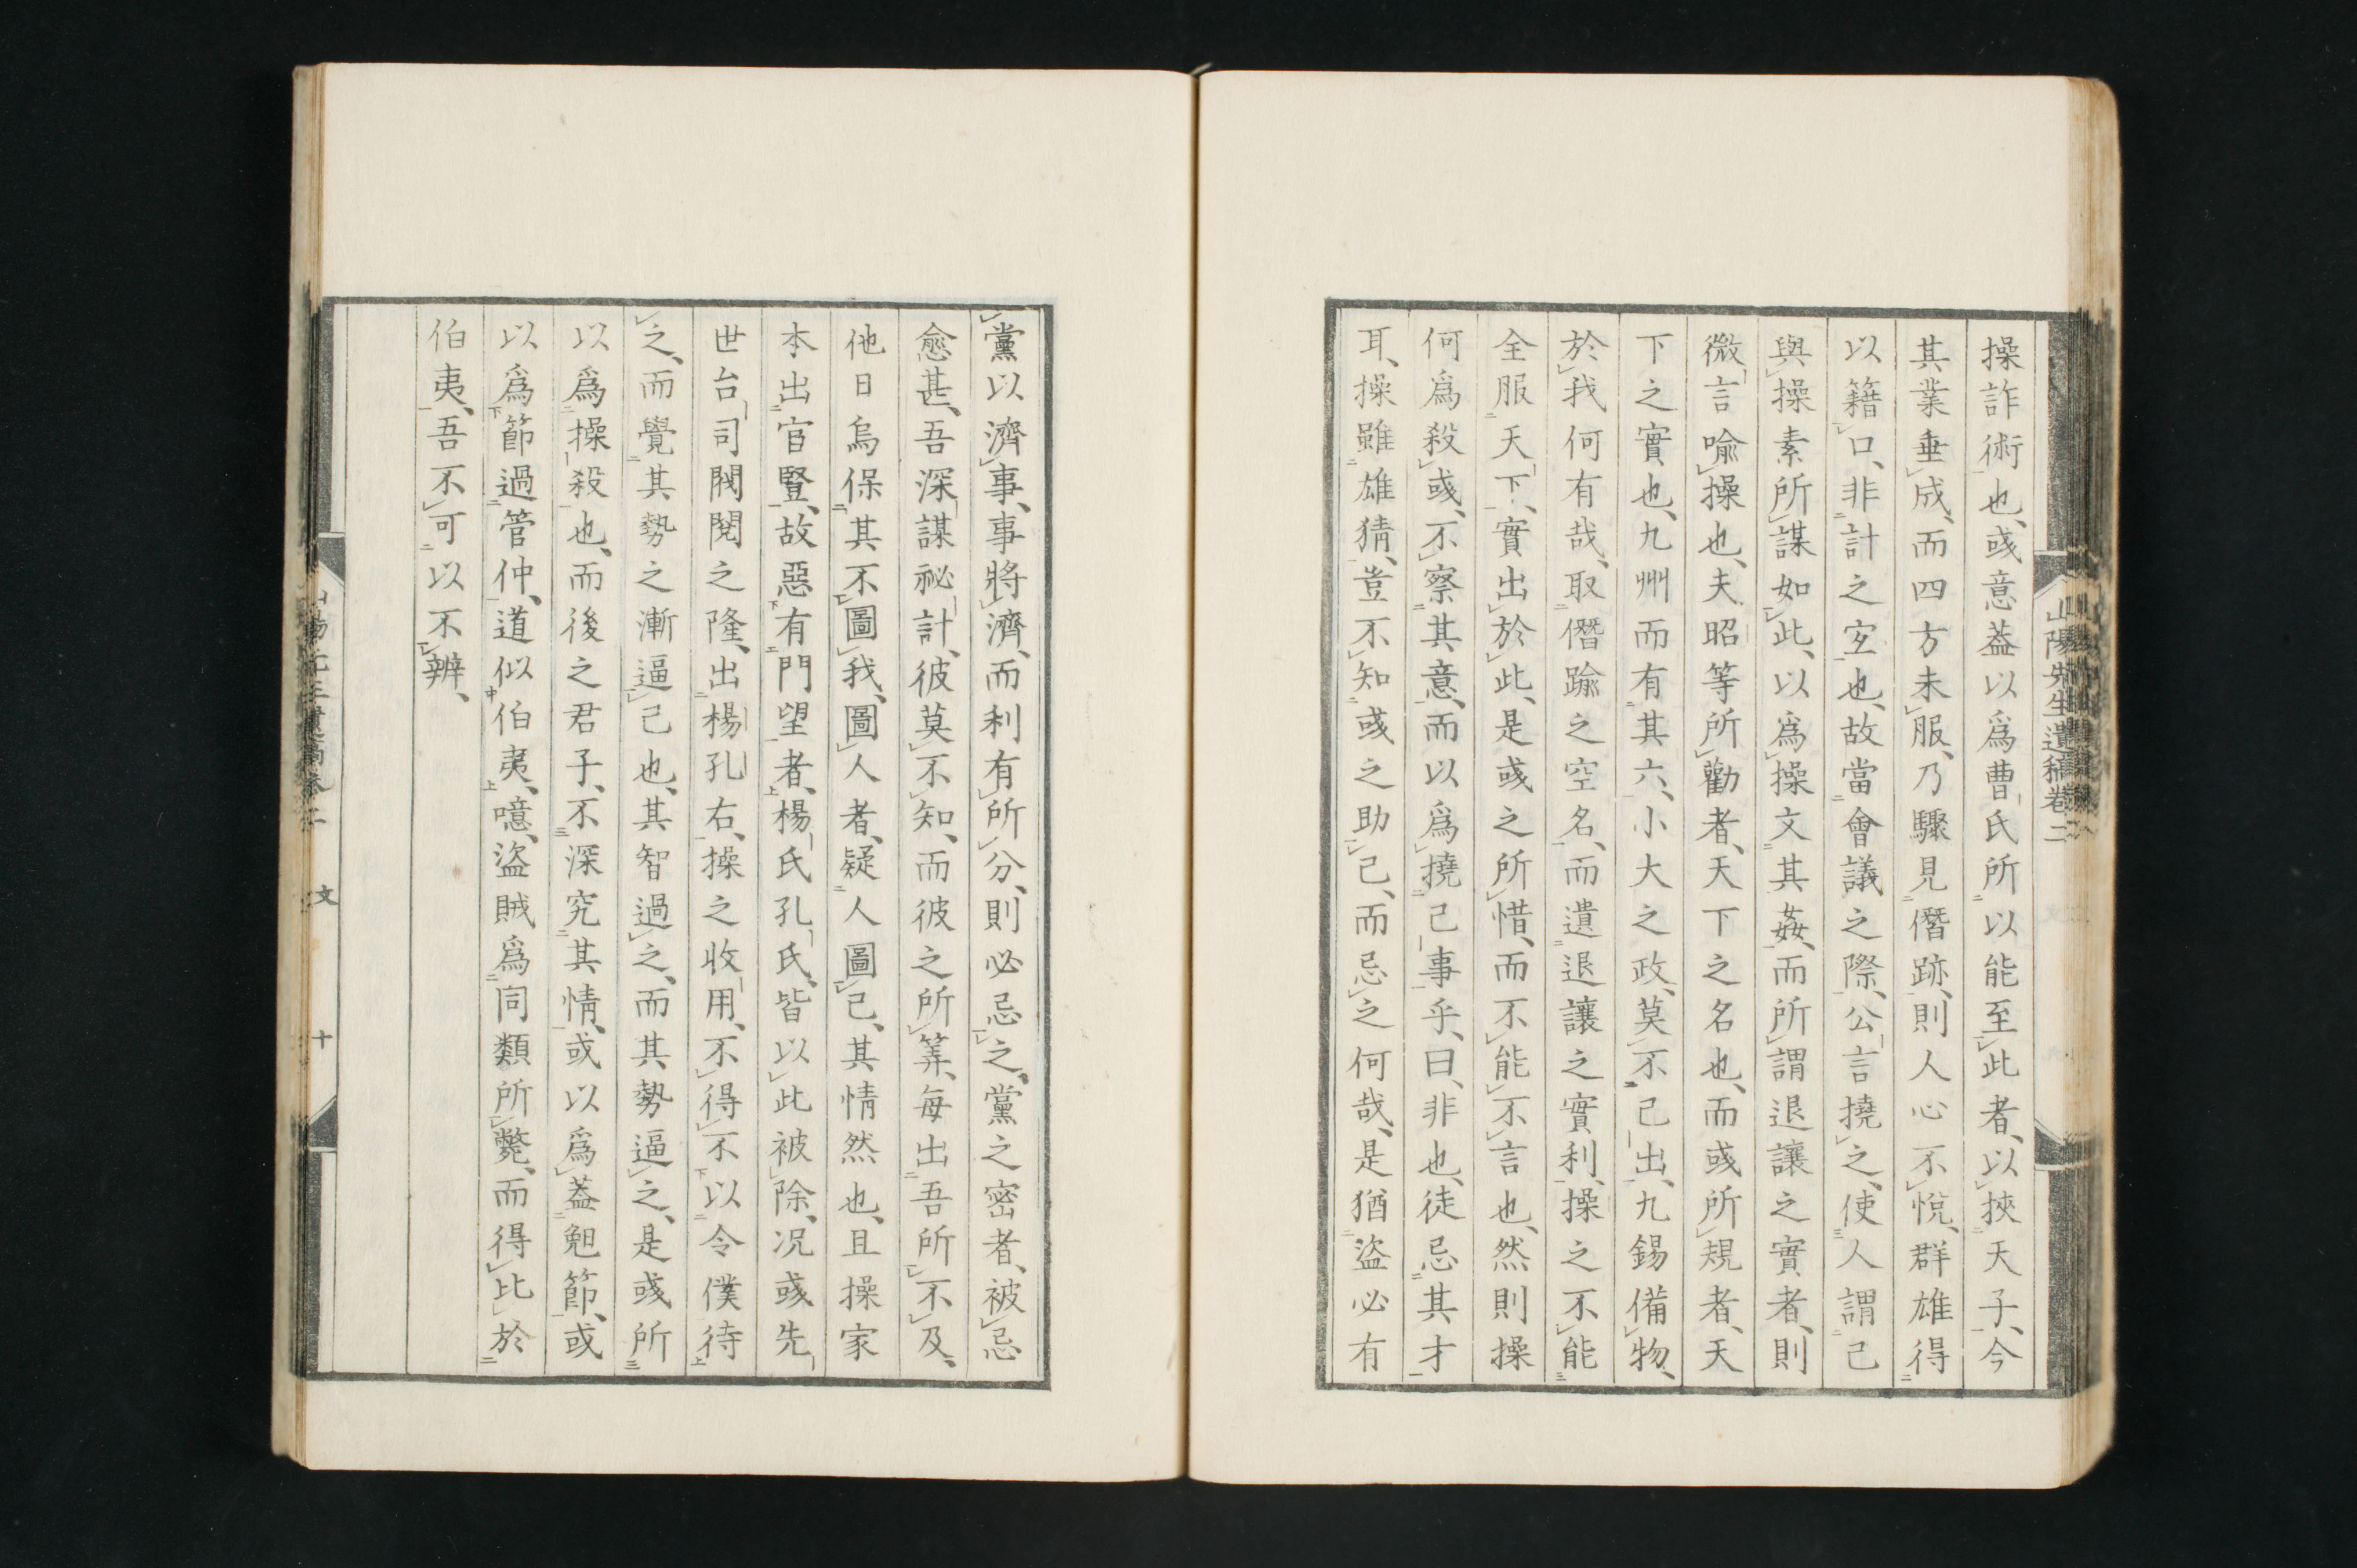 操詐術也、彧意葢以爲曹氏所以能至此者、以挾天子、今
其業垂成、而四方未服、乃驟見僭跡、則人心不悅、群雄得
以籍口、非計之宓也、故當會議之際、公言撓之、使人謂己
與操素所謀如此、以爲操文其姦、而所謂退讓之實者、則
微言喩操也、夫昭等所勸者、天下之名也、而彧所規者、天
下之實也、九州而有其六、小大之政、莫不己出、九錫備物、
於我何有哉、取僭踰之空名、而遺退讓之實利、操之不能
全服天下、實出於此、是彧之所惜、而不能不言也、然則操
何爲殺彧、不察其意、而以爲撓己事乎、曰、非也、徒忌其才
耳、操雖雄猜、豈不知彧之助己、而忌之何哉、是猶盜必有
山陽先生遺稿卷二
黨以濟事、事將濟、而利有所分、則必忌之、黨之密者、被忌
愈甚、吾深謀祕計、彼莫不知、而彼之所筭、每出吾所不及、
他日烏保其不圖我、圖人者、疑人圖己、其情然也、且操家
本出宦豎、故惡有門望者、楊氏孔氏、皆以此被除、況彧先
世台司閥閱之隆、出楊孔右、操之收用、不得不以令僕待
之、而覺其勢之漸逼己也、其智過之、而其勢逼之、是彧所
以爲操殺也、而後之君子、不深究其情、或以爲葢勉節、或
以爲節過管仲、道似伯夷、噫、盜賊爲同類所斃、而得比於
伯夷、吾不可以不辨、
文 十